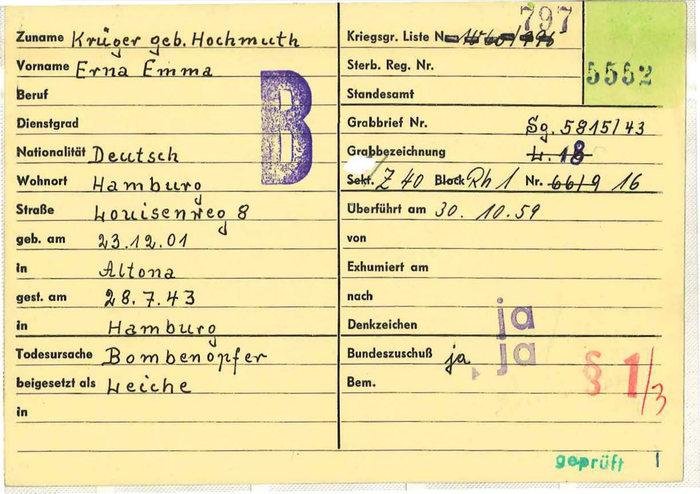 Zuname Krüger geb. Hochmuth
Vorname Erna Emma
Beruf
Dienstgrad
Nationalität Deutsch
Wohnort Hamburg
Straße Louisenweg 8
geb. am 23.12.01
in Altona
gest. am 28.7.43
in Hamburg
Todesursache Bombenopfer
beigesetzt als Leiche
in
B
797
Kriegsgr. Liste Nr.
Sterb. Reg. Nr.
5552
Standesamt
Grabbrief Nr. Sg. 5815/43
Grabbezeichnung 18
Sekt. Z 40 Block Rh 1 Nr. 66/9 16
Überführt am 30. 10. 59
von
Exhumiert am
nach
Denkzeichen ja
Bundeszuschuß ja ja
Bem. § 1/3
geprüft